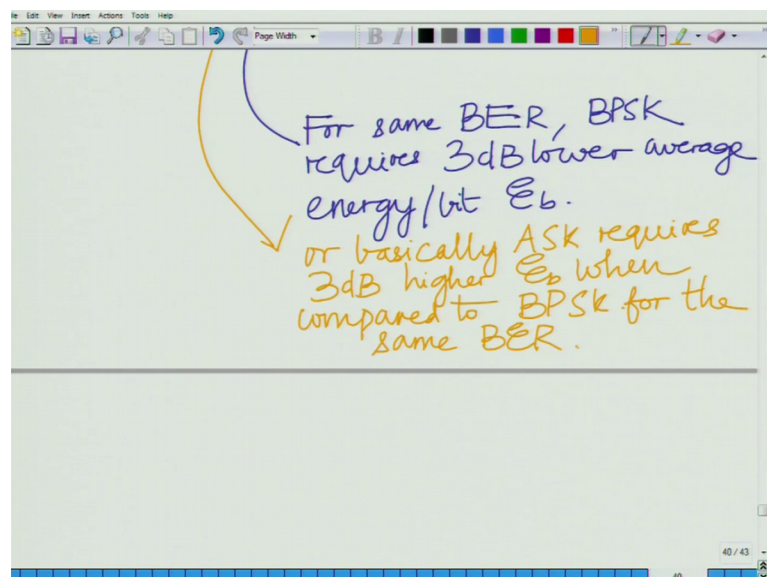 Edit View Insert Actions Tools Help
Page Width
B I
For same BER, BPSK
requires 3dB lower average
energy/bit Eb.
or basically ASK requires
3dB higher Eb when
compared to BPSK for the
same BER.
40 / 43
40